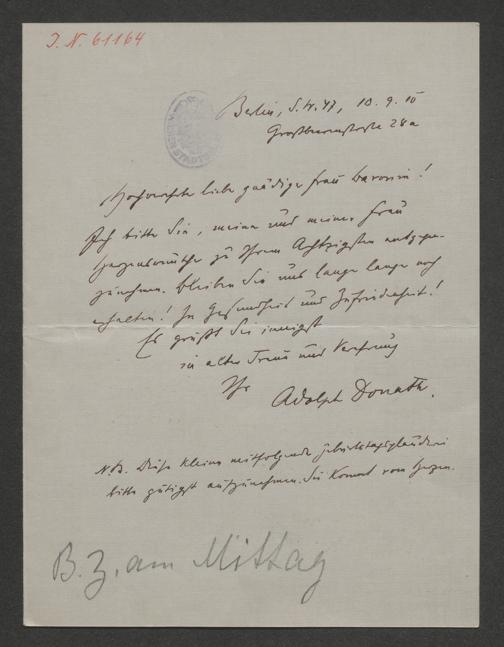 J. N. 61164
Berlin, S.W. 47, 10. 9. 10
Großbeerenstraße 28a
Hochverehrte liebe gnädige Frau Baronin!
Ich bitte Sie, meine und meiner Frau
Herzenswünsche zu Ihrem Achtzigsten entgegen-
zunehmen. Bleiben Sie uns lange lange noch
erhalten! In Gesundheit und Zufriedenheit!
Es grüßt Sie innigst
in alter Treue und Verehrung
Ihr
Adolph Donath.
N.B. Diese kleine mitfolgende Geburtstagsplauderei
bitte gütigst aufzunehmen. Sie kommt vom Herzen.
B. Z. am Mittag